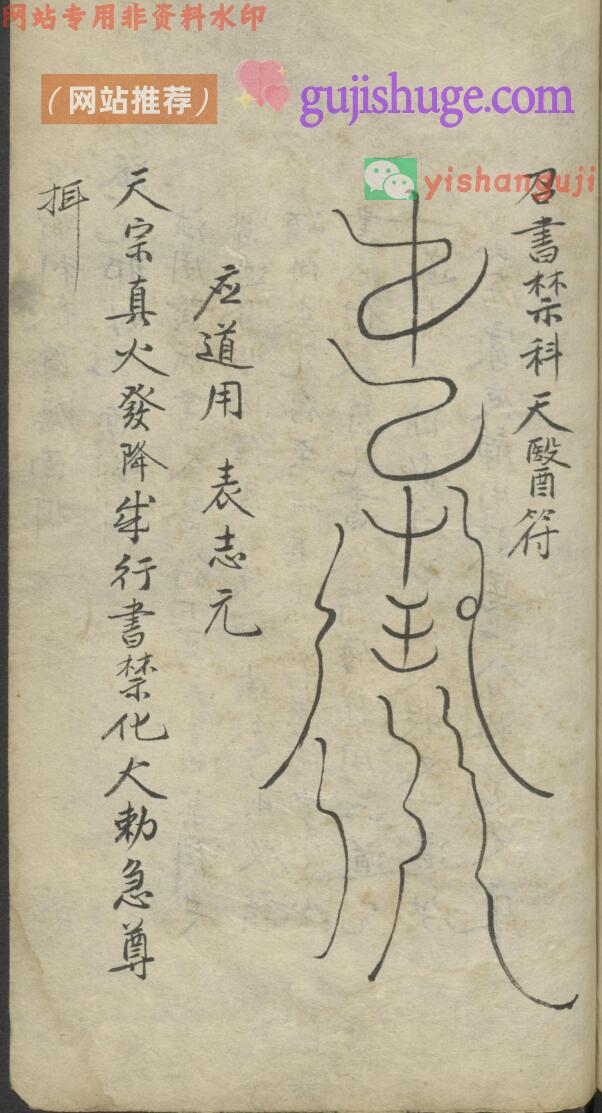 网站专用非资料水印
（网站推荐）
gujishuge.com
yishanguji
召書禁科天醫符
应道用 表志元
天宗真火發降 行書禁化大勅急尊